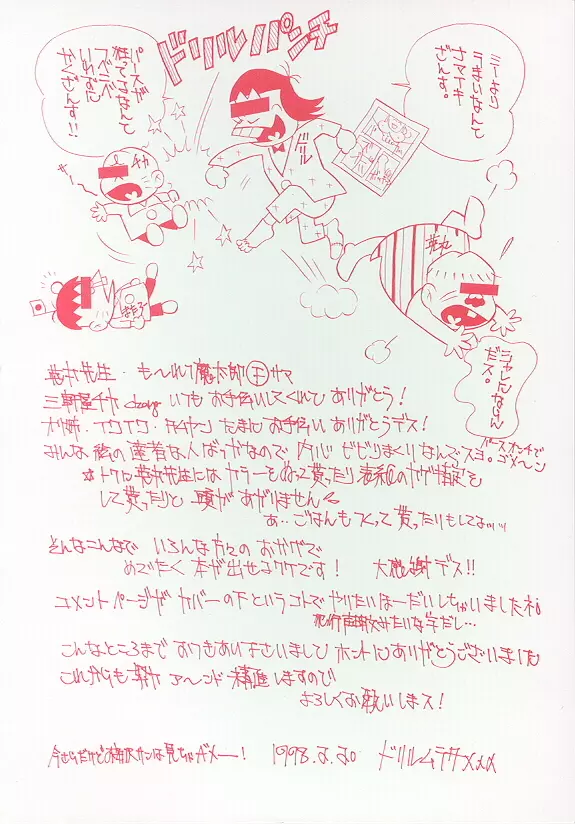 ドリルパンチ
ミーより
うまいなんて
ナマイキ
ざんす。
ピースが
狂って
なんて
チャ
ドリル
シャレになんない
だス。
先生・も〜れつ魔太郎サマ
三軒屋チカ chang いつもお手伝いしてくれてありがとう！
たまにお手伝いありがとうデス！
みんな 絵の達者な人ばっかなので 内心 ビビりまくりなんでスヨ。
パースオンチで
ゴメーン
トクに 先生には カラーをぬって貰ったり 表紙の
して貰ったりと 頭があがりません
あ‥ごはんもつくって貰ったりもしてるッッ
そんなこんなで いろんな方々の おかげで
めでたく 本が出せるワケです！ 大感謝デス!!
コメントページが カバーの下というコトで やりたいほーだいしちゃいましたネ。
犯行声明文みたいな字だし…
こんなところまで おつきあい下さいまして ホントにありがとうございました
これからも アヘンド 精進しますので
よろしくお願いしまス！
今さらだけど サンは見ちゃダメー！ 1998.2.20 ドリルムラタxxx